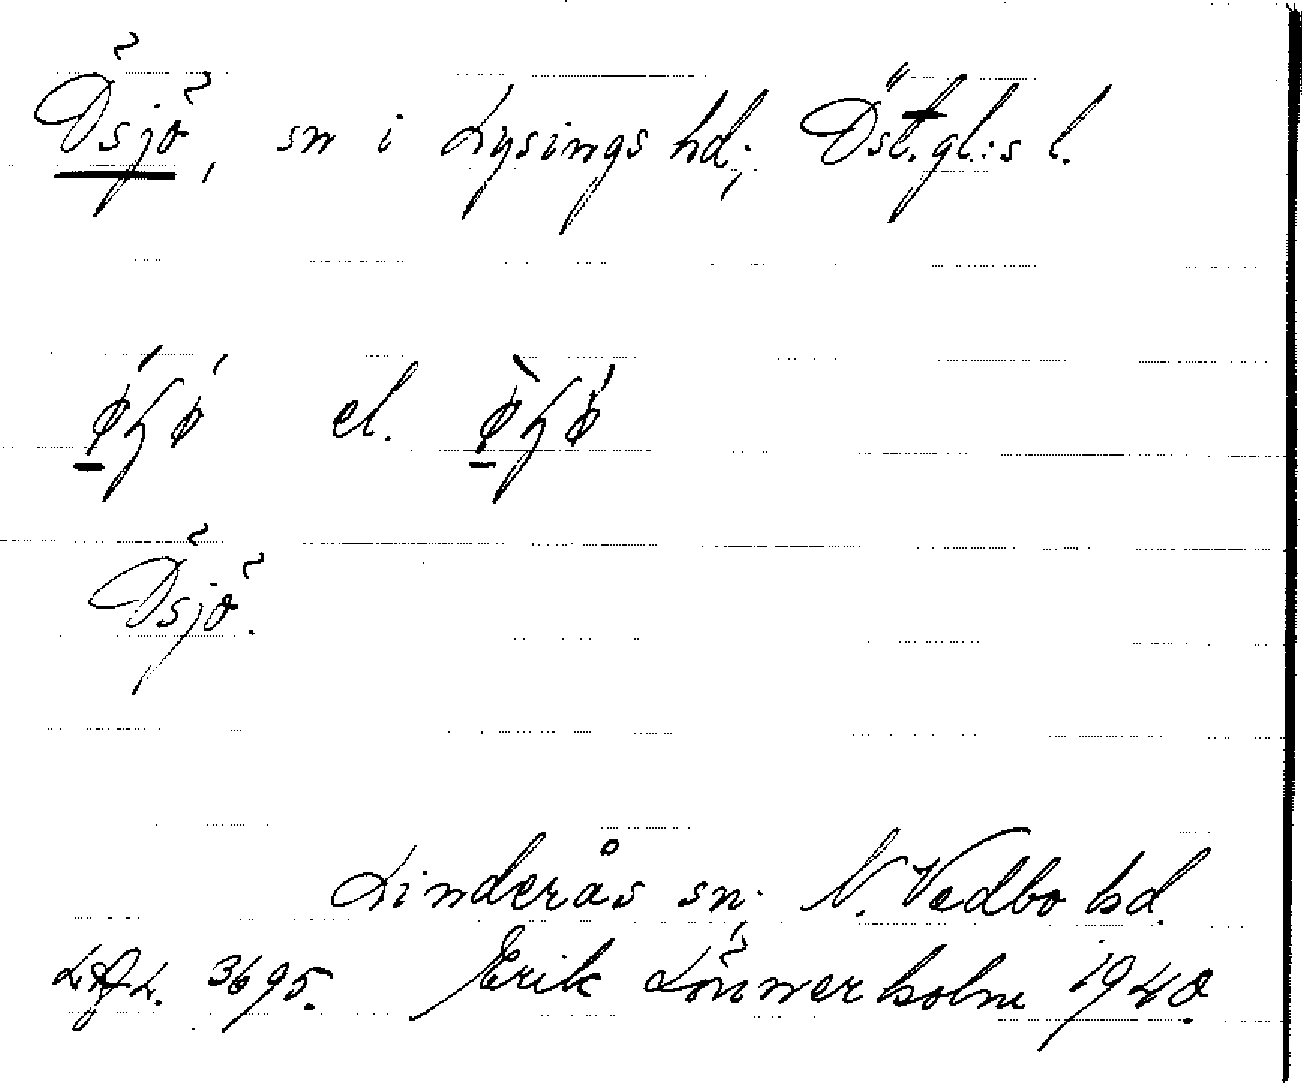 Ösjö, sn i Lysings hd; Östgl:s l.
el.
Ösjö.
Linderås sn; N. Vedbo hd.
3695. Erik Lönnerholm 1940.